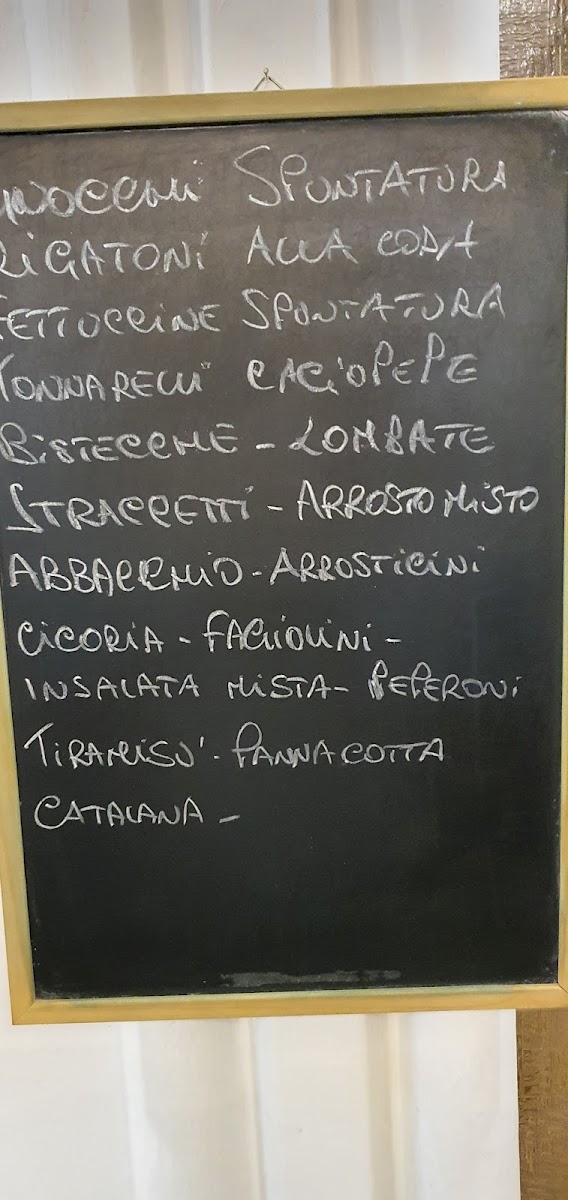 GNOCCHI SPUNTATURA
RIGATONI ALLA CODA
FETTUCCINE SPUNTATURA
TONNARELLI CACIOPEPE
BISTECCHE - LOMBATE
STRACCETTI - ARROSTO MISTO
ABBACCHIO - ARROSTICINI
CICORIA - FAGIOLINI -
INSALATA MISTA - PEPERONI
TIRAMISU' - PANNACOTTA
CATALANA -